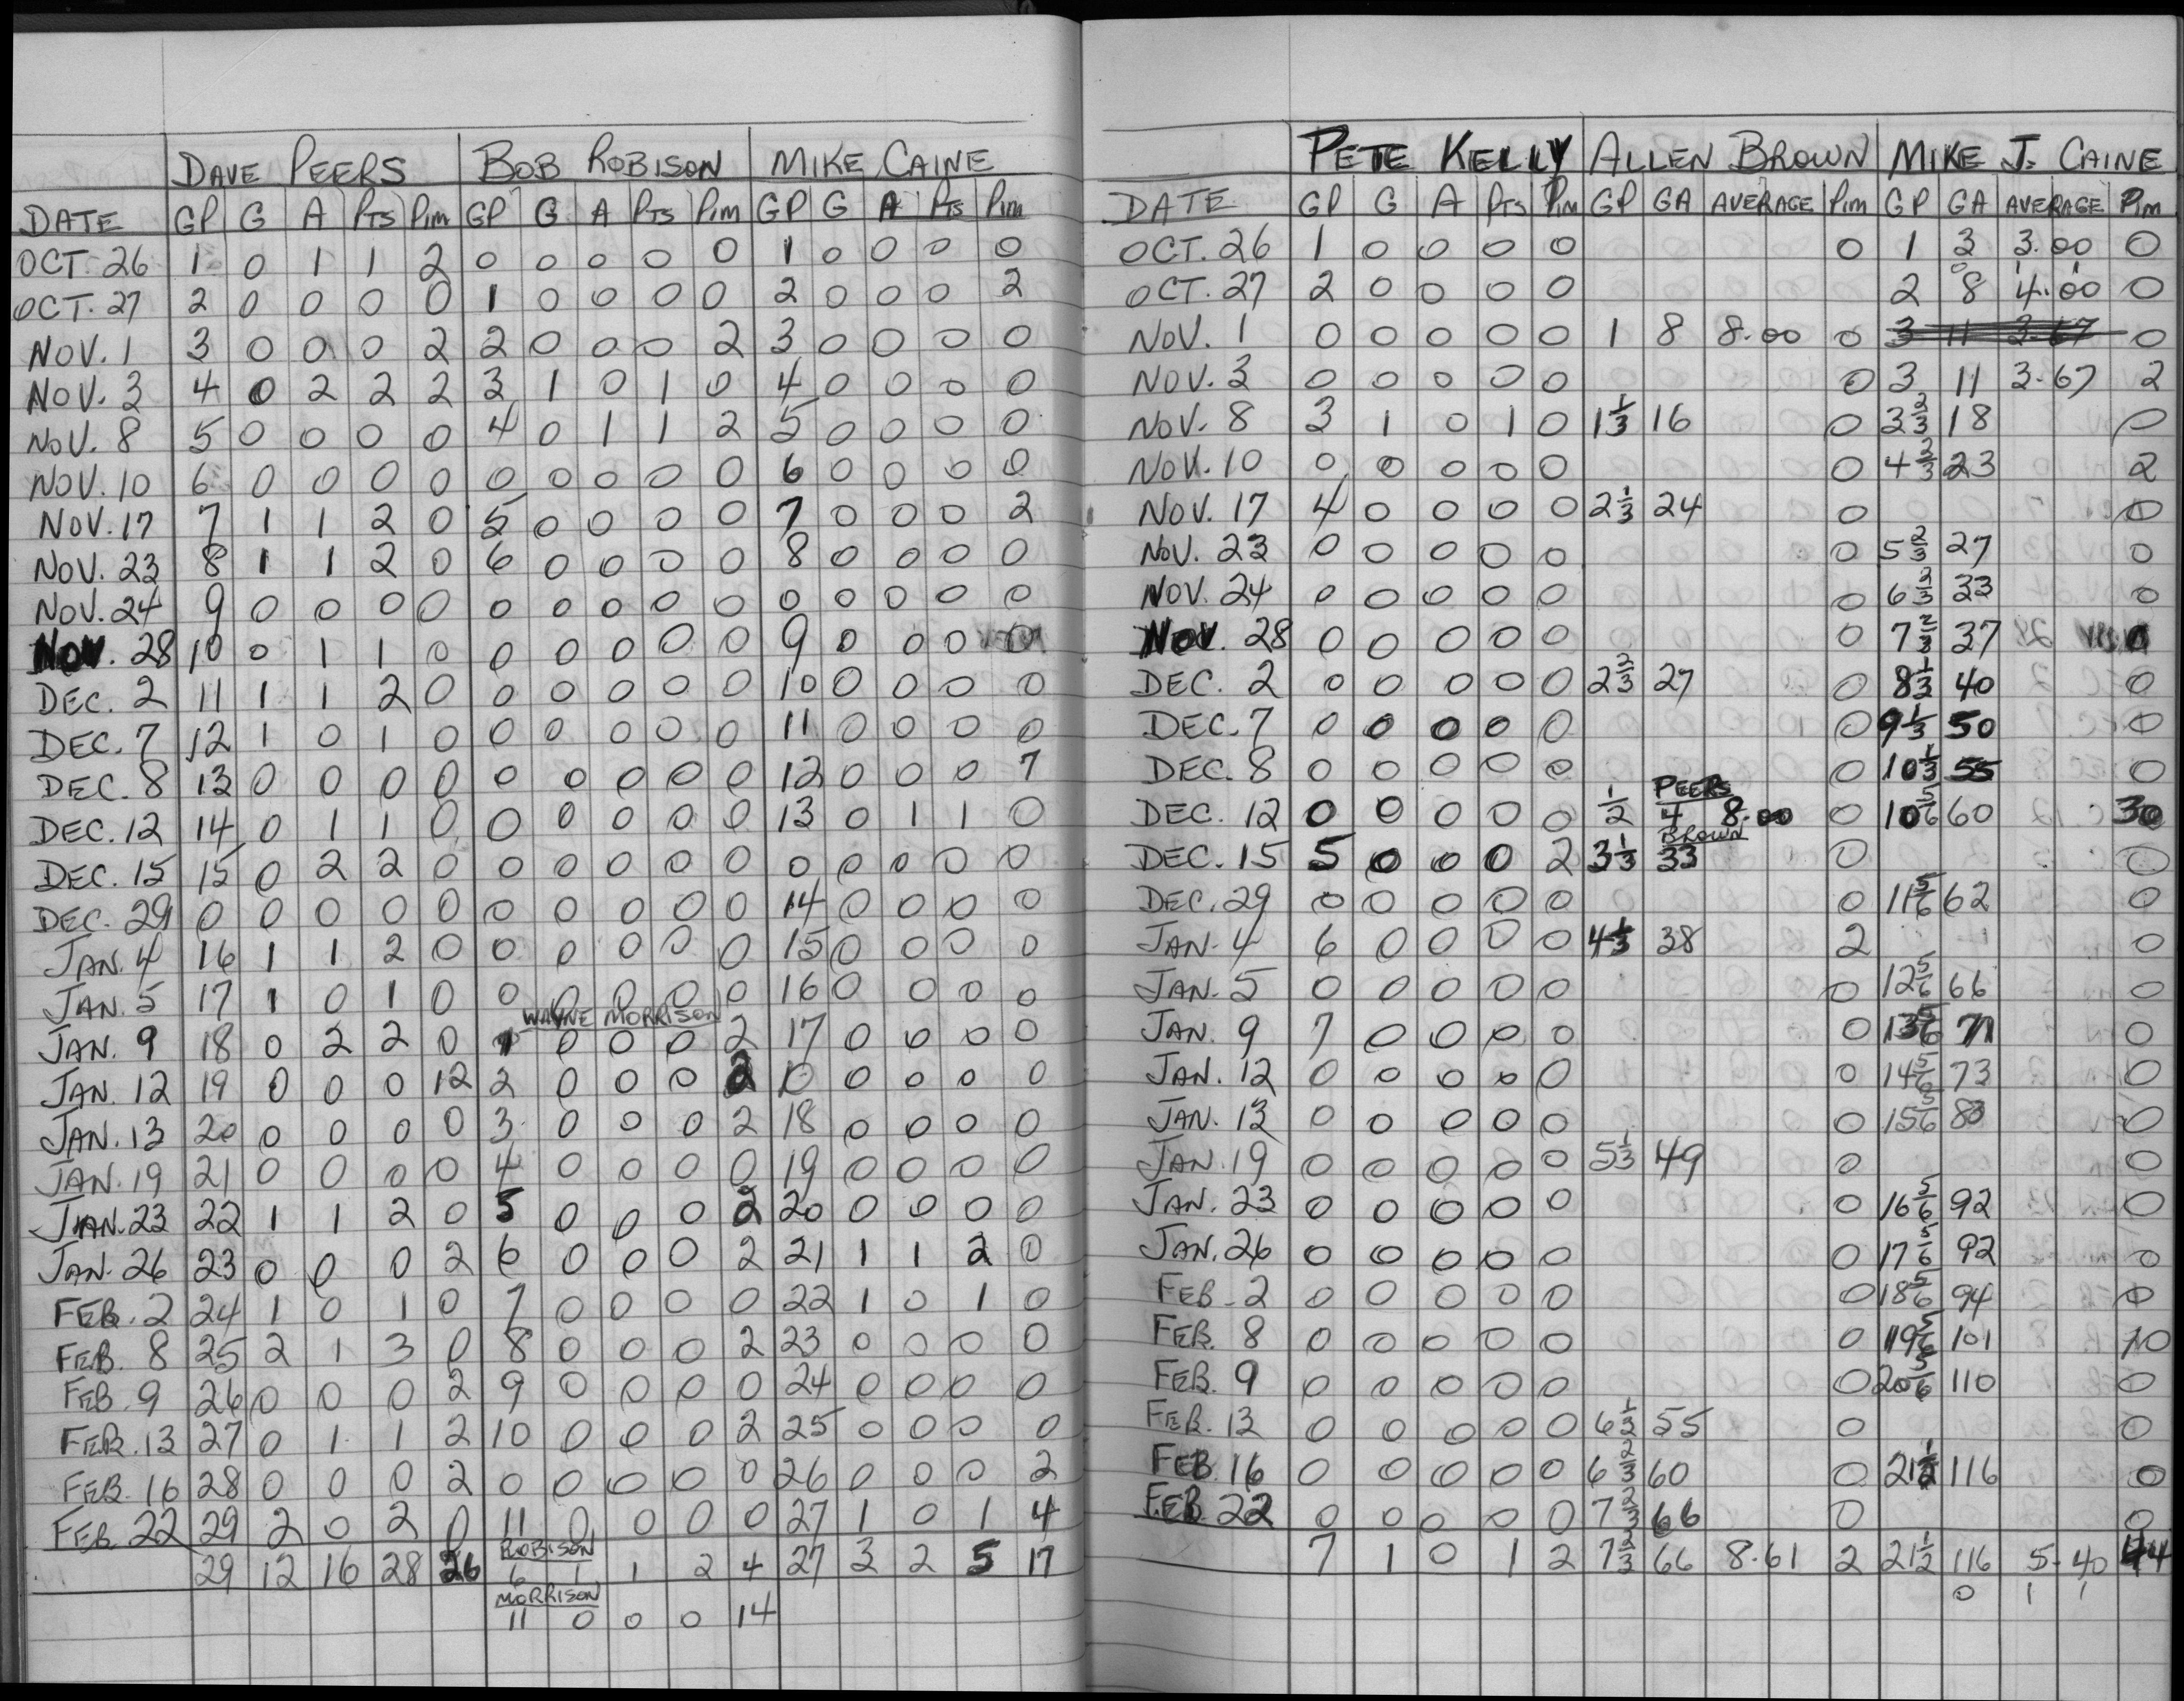 DAVE PEERS BOB ROBISON MIKE CAINE
DATE GP G A PTS PIM GP G A PTS PIM GP G A PTS PIM
OCT. 26 1 0 1 1 2 0 0 0 0 0 1 0 0 0 0
OCT. 27 2 0 0 0 0 1 0 0 0 0 2 0 0 0 2
NOV. 1 3 0 0 0 2 2 0 0 0 2 3 0 0 0 0
NOV. 3 4 0 2 2 2 3 1 0 1 0 4 0 0 0 0
NOV. 8 5 0 0 0 0 4 0 1 1 2 5 0 0 0 0
NOV. 10 6 0 0 0 0 0 0 0 0 0 6 0 0 0 0
NOV. 17 7 1 1 2 0 5 0 0 0 0 7 0 0 0 2
NOV. 23 8 1 1 2 0 6 0 0 0 0 8 0 0 0 0
NOV. 24 9 0 0 0 0 0 0 0 0 0 0 0 0 0 0
NOV. 28 10 0 1 1 0 0 0 0 0 0 9 0 0 0 0
DEC. 2 11 1 1 2 0 0 0 0 0 0 10 0 0 0 0
DEC. 7 12 1 0 1 0 0 0 0 0 0 11 0 0 0 0
DEC. 8 13 0 0 0 0 0 0 0 0 0 12 0 0 0 7
DEC. 12 14 0 1 1 0 0 0 0 0 0 13 0 1 1 0
DEC. 15 15 0 2 2 0 0 0 0 0 0 0 0 0 0 0
DEC. 29 0 0 0 0 0 0 0 0 0 0 14 0 0 0 0
JAN. 4 16 1 1 2 0 0 0 0 0 0 15 0 0 0 0
JAN. 5 17 1 0 1 0 0 0 0 0 0 16 0 0 0 0
WAYNE MORRISON
JAN. 9 18 0 2 2 0 1 0 0 0 2 17 0 0 0 0
JAN. 12 19 0 0 0 12 2 0 0 0 2 0 0 0 0 0
JAN. 13 20 0 0 0 0 3 0 0 0 2 18 0 0 0 0
JAN. 19 21 0 0 0 0 4 0 0 0 0 19 0 0 0 0
JAN. 23 22 1 1 2 0 5 0 0 0 2 20 0 0 0 0
JAN. 26 23 0 0 0 2 6 0 0 0 2 21 1 1 2 0
FEB. 2 24 1 0 1 0 7 0 0 0 0 22 1 0 1 0
FEB. 8 25 2 1 3 0 8 0 0 0 2 23 0 0 0 0
FEB. 9 26 0 0 0 2 9 0 0 0 0 24 0 0 0 0
FEB. 13 27 0 1 1 2 10 0 0 0 2 25 0 0 0 0
FEB. 16 28 0 0 0 2 0 0 0 0 0 26 0 0 0 2
FEB. 22 29 2 0 2 0 11 0 0 0 0 27 1 0 1 4
ROBISON
29 12 16 28 26 6 1 1 2 4 27 3 2 5 17
MORRISON
11 0 0 0 14
PETE KELLY ALLEN BROWN MIKE J. CAINE
DATE GP G A PTS PIM GP GA AVERAGE PIM GP GA AVERAGE PIM
OCT. 26 1 0 0 0 0 0 1 3 3.00 0
OCT. 27 2 0 0 0 0 2 8 4.00 0
NOV. 1 0 0 0 0 0 1 8 8.00 0 3 11 3.67 0
NOV. 3 0 0 0 0 0 0 3 11 3.67 2
NOV. 8 3 1 0 1 0 1 1/3 16 0 3 2/3 18 0
NOV. 10 0 0 0 0 0 0 4 2/3 23 2
NOV. 17 4 0 0 0 0 2 1/3 24 0 0
NOV. 23 0 0 0 0 0 0 5 2/3 27 0
NOV. 24 0 0 0 0 0 0 6 2/3 33 0
NOV. 28 0 0 0 0 0 0 7 2/3 37 0
DEC. 2 0 0 0 0 0 2 2/3 27 0 8 1/3 40 0
DEC. 7 0 0 0 0 0 0 9 1/3 50 0
DEC. 8 0 0 0 0 0 0 10 1/3 55 0
PEERS
DEC. 12 0 0 0 0 0 1/2 4 8.00 0 10 5/6 60 30
BROWN
DEC. 15 5 0 0 0 2 3 1/3 33 0 0
DEC. 29 0 0 0 0 0 0 11 5/6 62 0
JAN. 4 6 0 0 0 0 4 1/3 38 2 0
JAN. 5 0 0 0 0 0 0 12 5/6 66 0
JAN. 9 7 0 0 0 0 0 13 5/6 71 0
JAN. 12 0 0 0 0 0 0 14 5/6 73 0
JAN. 13 0 0 0 0 0 0 15 5/6 80 0
JAN. 19 0 0 0 0 0 5 1/3 49 0 0
JAN. 23 0 0 0 0 0 0 16 5/6 92 0
JAN. 26 0 0 0 0 0 0 17 5/6 92 0
FEB. 2 0 0 0 0 0 0 18 5/6 94 0
FEB. 8 0 0 0 0 0 0 19 5/6 101 10
FEB. 9 0 0 0 0 0 0 20 5/6 110 0
FEB. 13 0 0 0 0 0 6 1/3 55 0 0
FEB. 16 0 0 0 0 0 6 2/3 60 0 21 1/2 116 0
FEB 22 0 0 0 0 0 7 2/3 66 0 0
7 1 0 1 2 7 2/3 66 8.61 2 21 1/2 116 5.40 44
0 1 1